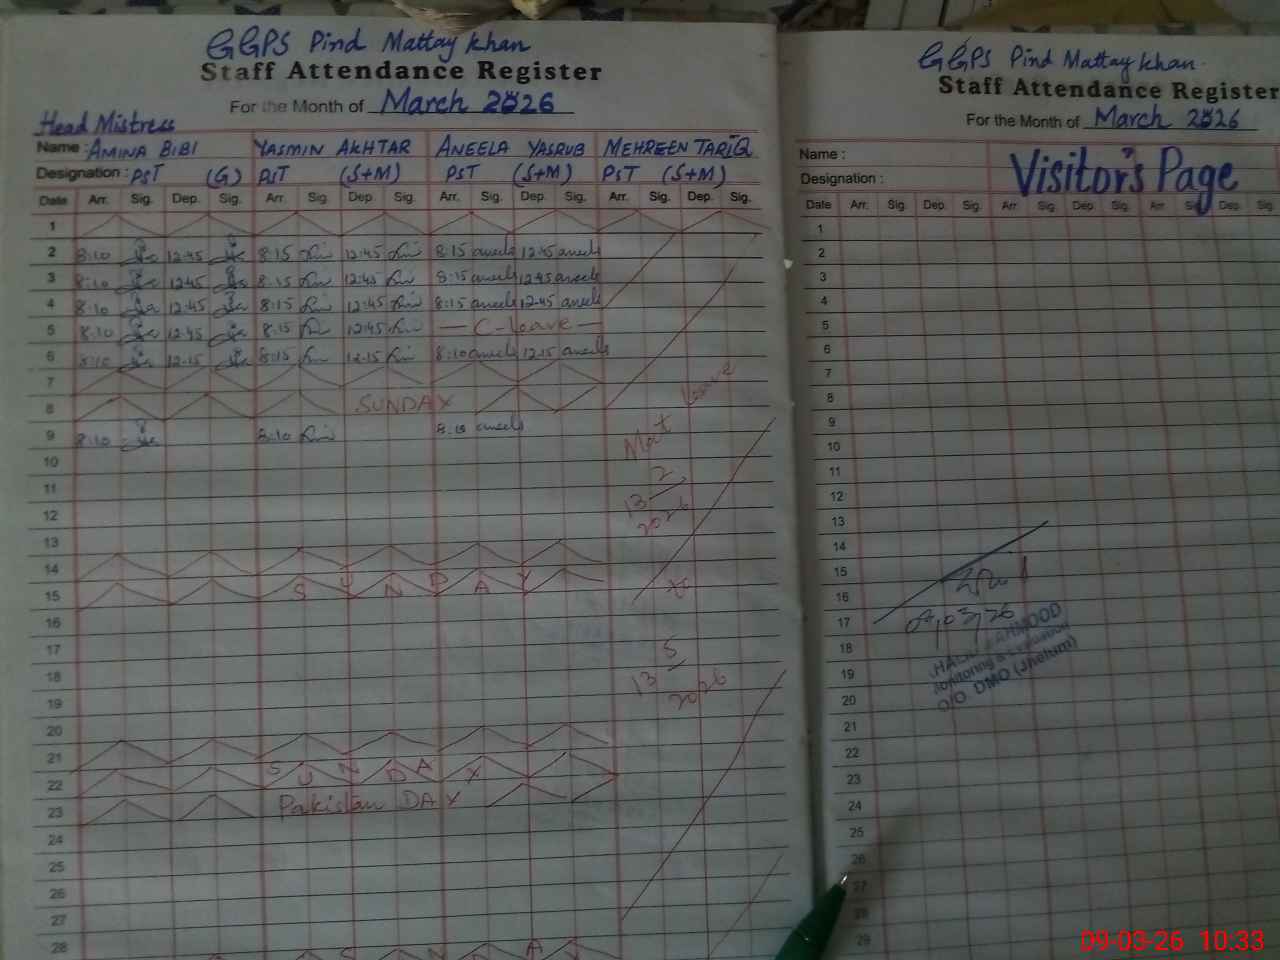 GGPS Pind Mattay Khan
Staff Attendance Register
For the Month of March 2026
Head Mistress
Name : AMINA BIBI YASMIN AKHTAR ANEELA YASRUB MEHREEN TARIQ
Designation : PST (G) PST (S+M) PST (S+M) PST (S+M)
Date Arr. Sig. Dep. Sig. Arr. Sig. Dep. Sig. Arr. Sig. Dep. Sig. Arr. Sig. Dep. Sig.
1
2 8:10 12:45 8:15 12:45 8:15 aneela 12:45 aneela
3 8:10 12:45 8:15 12:45 8:15 aneela 12:45 aneela
4 8:10 12:45 8:15 12:45 8:15 aneela 12:45 aneela
5 8:10 12:45 8:15 12:45 — C-leave —
6 8:10 12:15 8:15 12:15 8:10 aneela 12:15 aneela
7
8 SUNDAY
9 8:10 8:10 8:10 aneela
Mat leave
10
11
12
13 2
13
2026
14
15 SUNDAY
to
16
17
18
19
13 5
2026
20
21
22 SUNDAY
23 Pakistan DAY
24
25
26
27
28
N A
GGPS Pind Mattay Khan.
Staff Attendance Register
For the Month of March 2026
Name :
Designation :
Visitor's Page
Date Arr. Sig. Dep. Sig. Arr. Sig. Dep. Sig. Arr. Sig. Dep. Sig.
1
2
3
4
5
6
7
8
9
10
11
12
13
14
15
16
17
18
19
20
21
22
23
24
25
26
27
28
29
03,26
MAHMOOD
Monitoring & Evaluation
O/O DMO (Jhelum)
09-03-26 10:33